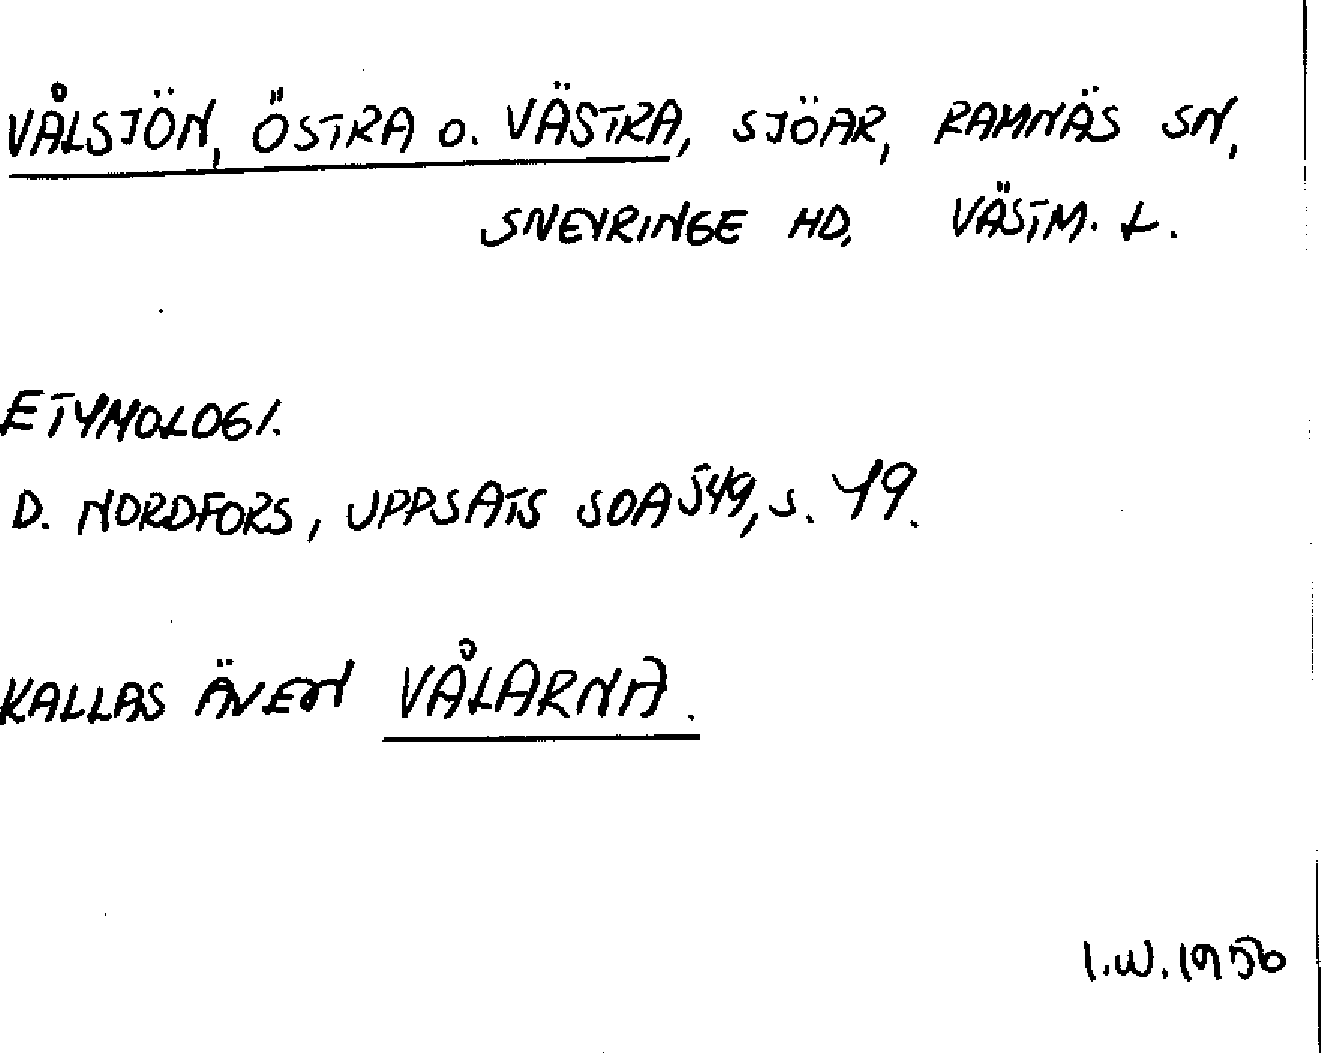 VÅLSJÖN, ÖSTRA O. VÄSTRA, SJÖAR, RAMNÄS SN,
SNEVRINGE HD, VÄSTM. L.
ETYMOLOGI.
D. NORDFORS, UPPSATS SOA 549, S. 49.
KALLAS ÄVEN VÅLARNA.
I.W. 1956